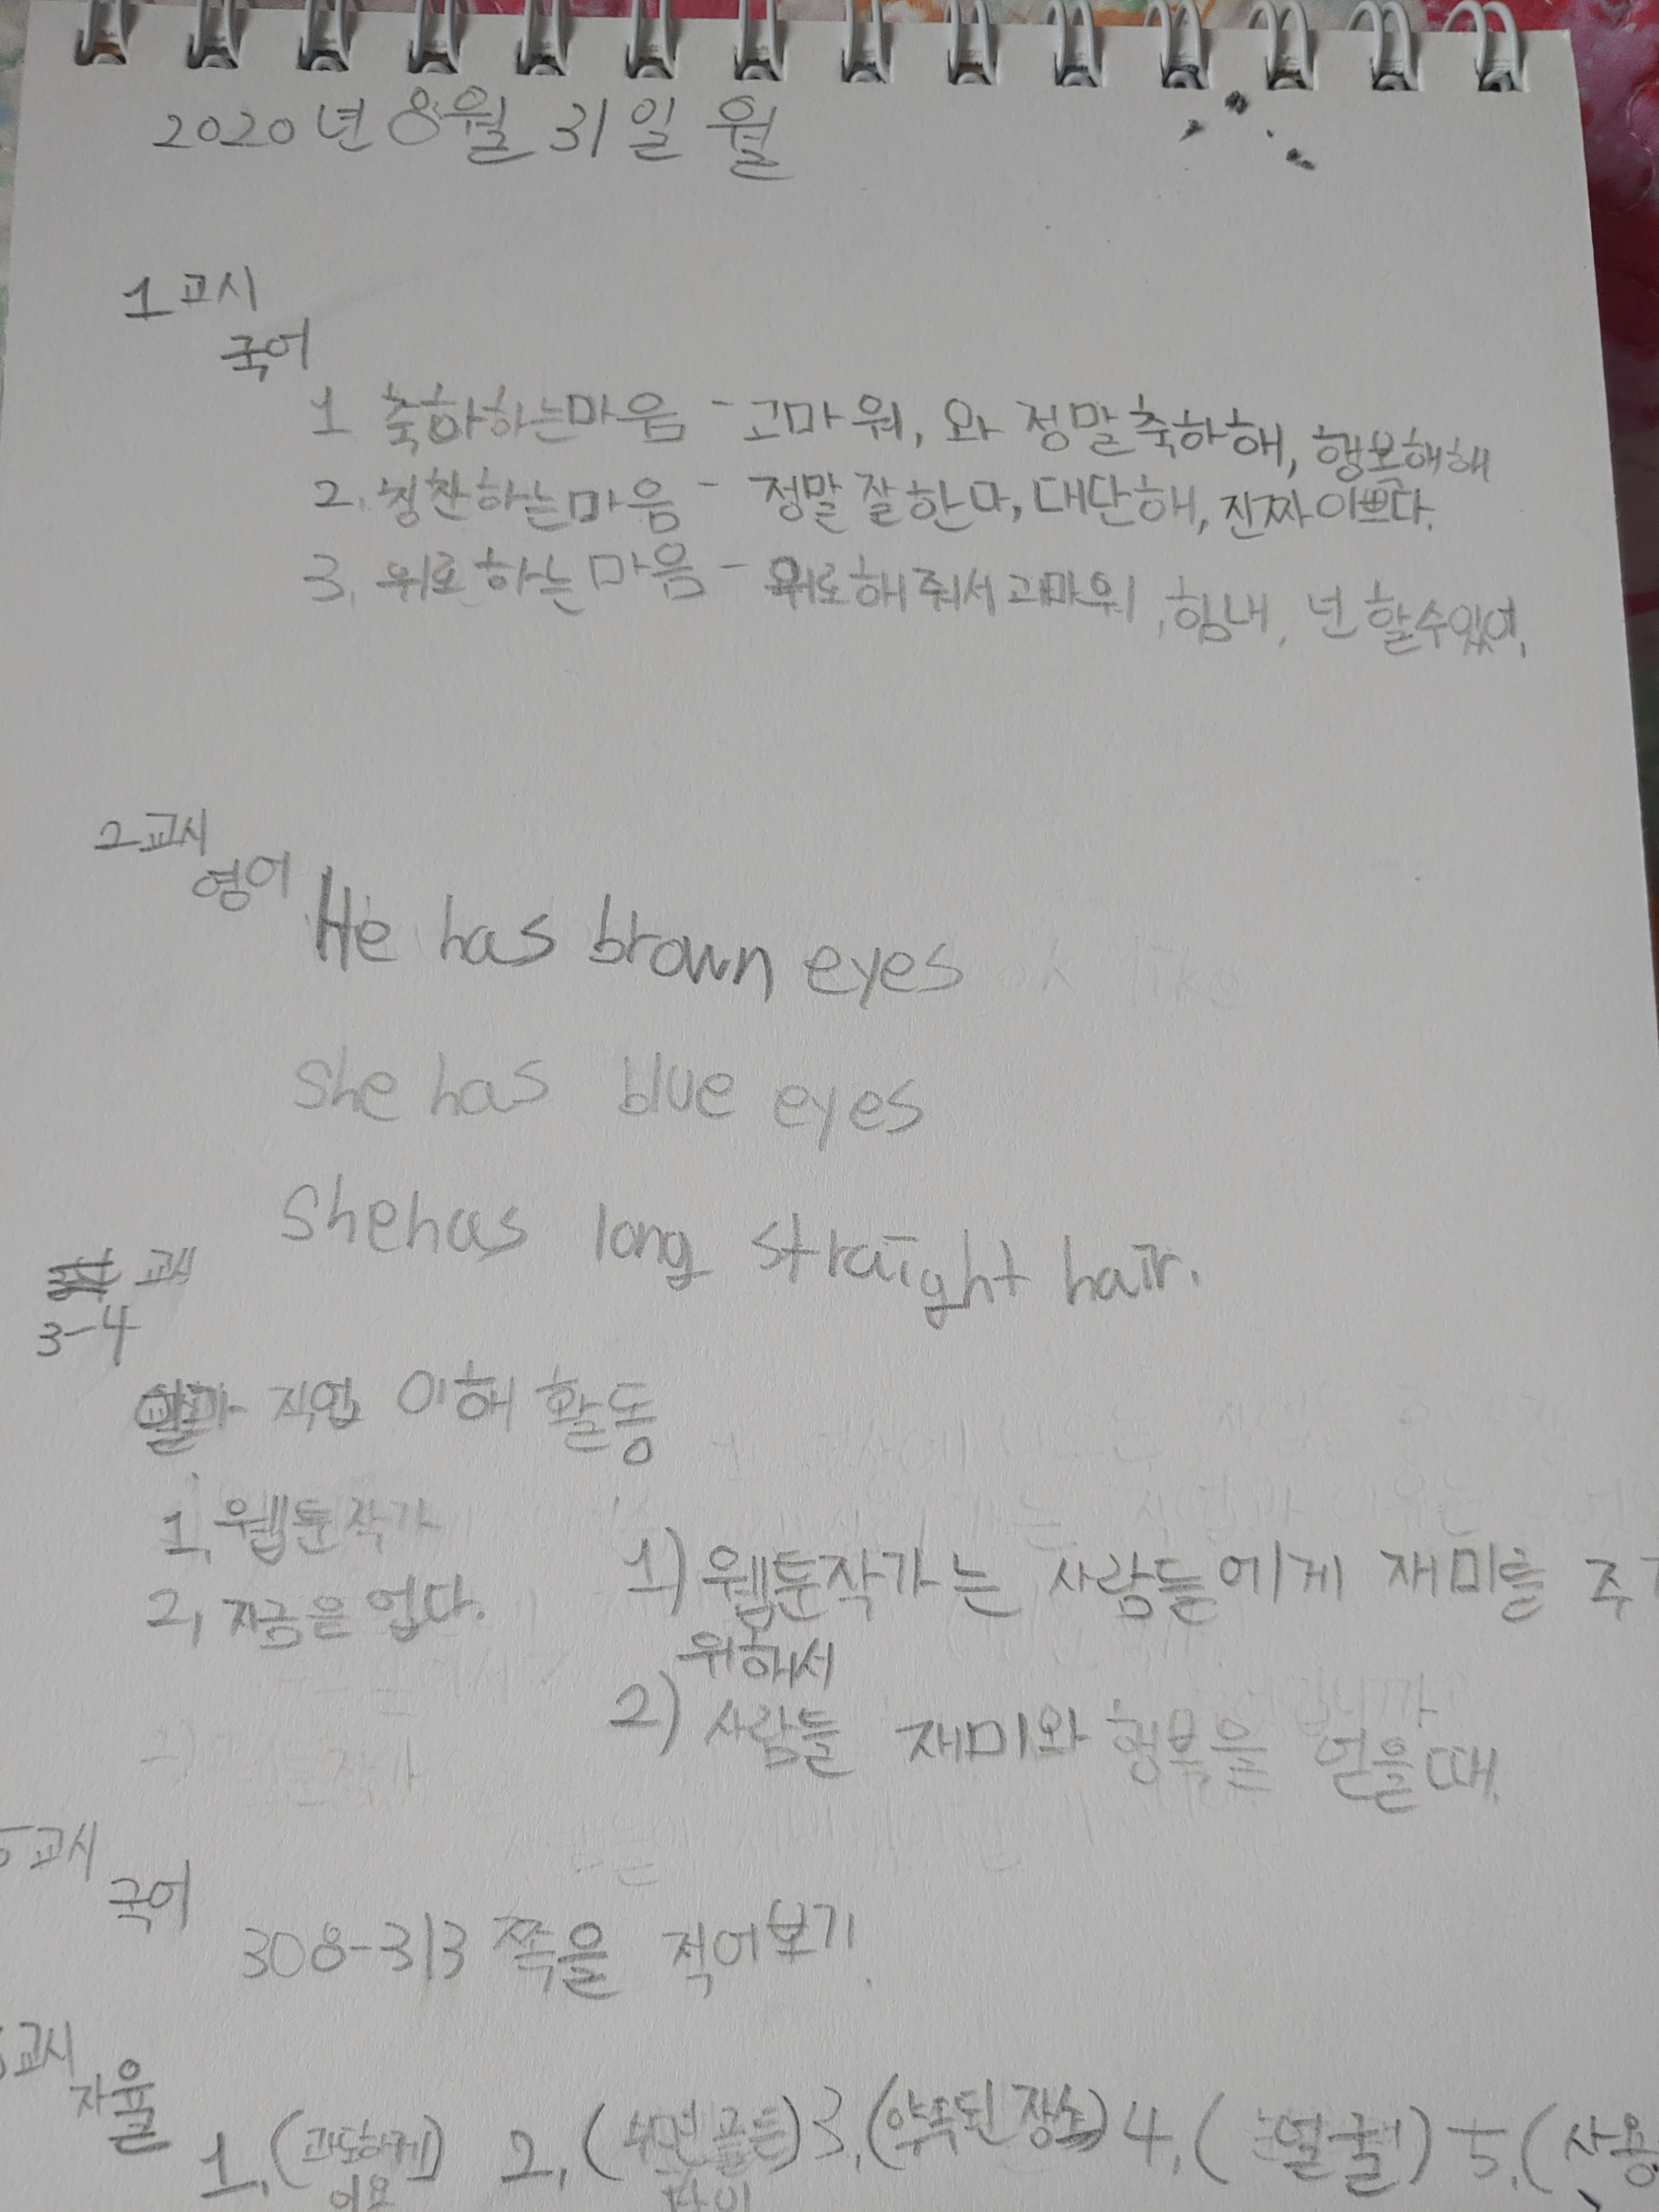 2020년 8월 31일 월
1교시
국어
1 축하하는마음 - 고마워, 와 정말축하해, 행복해해
2. 칭찬하는마음 - 정말잘한다, 대단해, 진짜이쁘다.
3. 위로하는마음 - 위로해줘서고마워, 힘내, 넌할수있어,
2교시
영어
He has brown eyes
She has blue eyes
She has long straight hair.
3-4
직업 이해 활동
1, 웹툰작가
2, 지금은 없다.
1) 웹툰작가는 사람들에게 재미를 주기
위해서
2) 사람들 재미와 행복을 얻을때.
5교시
국어
308-313 쪽을 적어보기.
교시
자율
1, (과도하게) 2, (수면 골든) 3, (약속된 장소) 4, (얼굴) 5, (사용